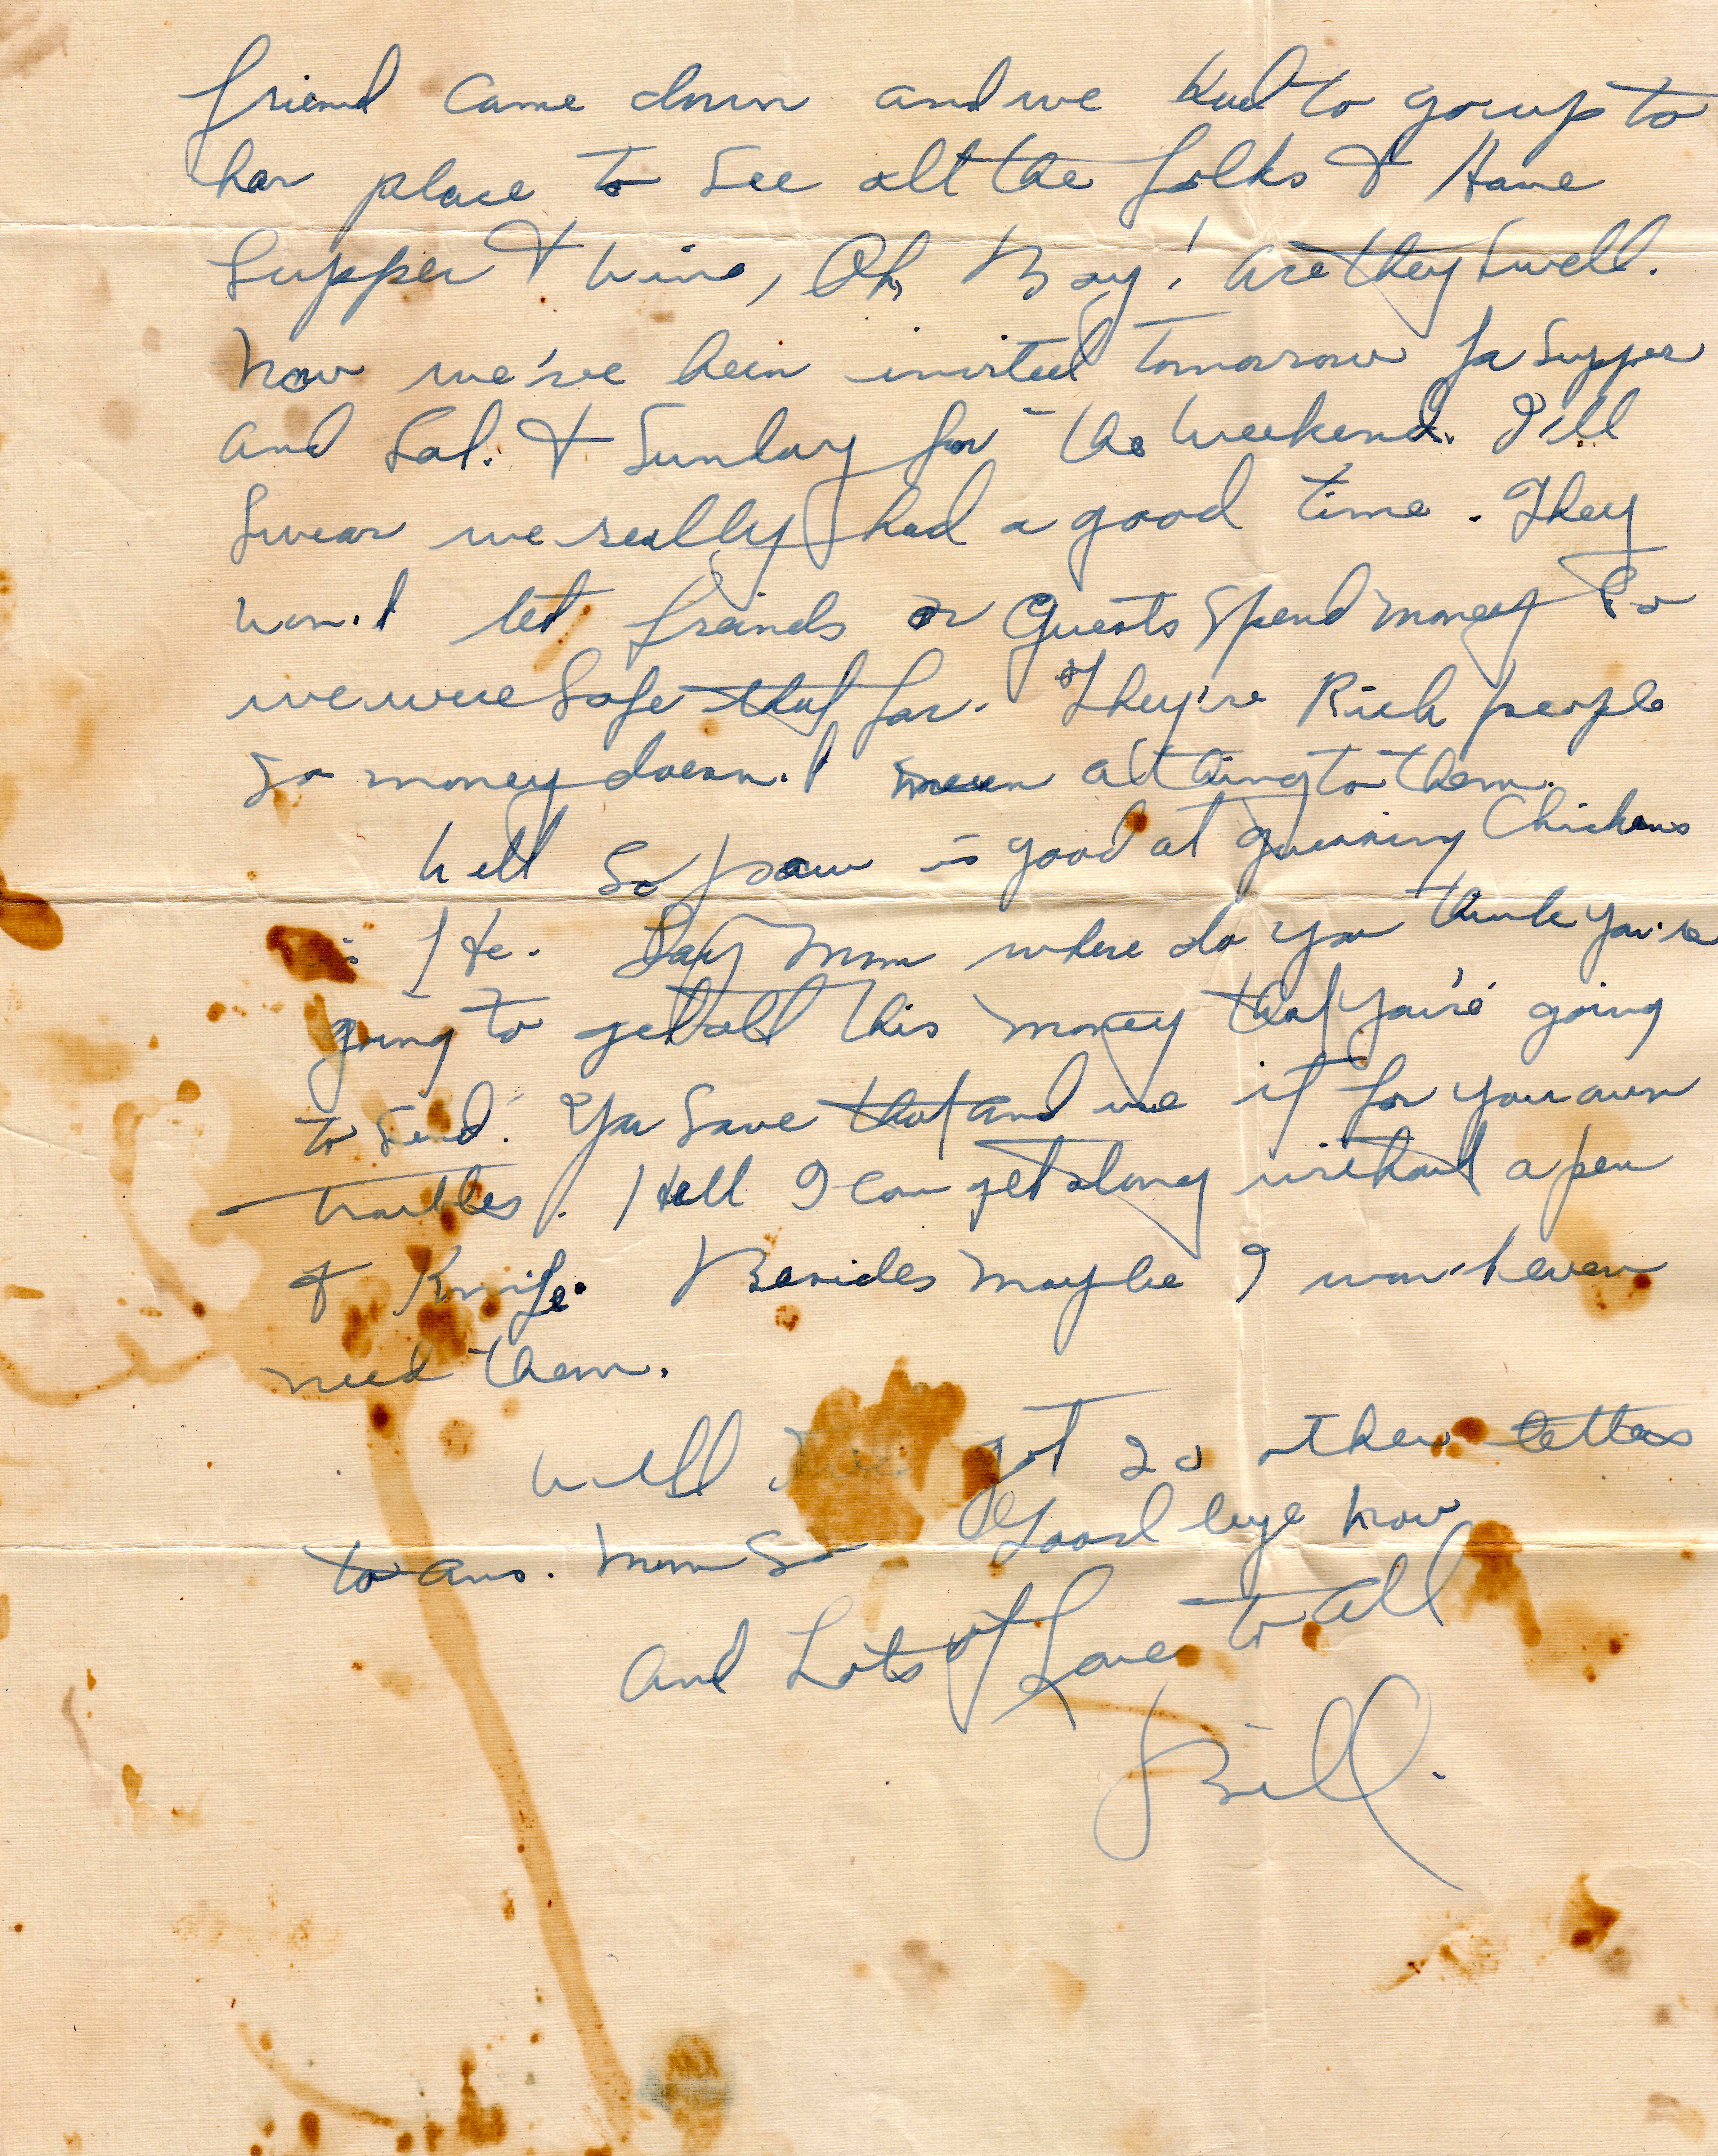 friend came down and we had to go up to
her place to see all the folks & Have
Supper & wine, Oh, Boy! are they swell.
Now we've been invited tomorrow fa Supper
and Sat. & Sunday for the weekend. I'll
Swear we really had a good time. They
won't let freinds or Guests spend money So
we were Safe that far. They're Rich people
So money doesn't mean a thing to them.
Well So paw is good at Chickens
is He. Say Mom where do you think you're
going to get all this money that you're going
to send. Ya save that and use it for your own
troubles. Hell I can get along without a pen
& Knife. Besides maybe I won't even
need them.
Well I've got 20 other letters
to ans. Mom So Good bye now
and Lots of Love to all
Bill.